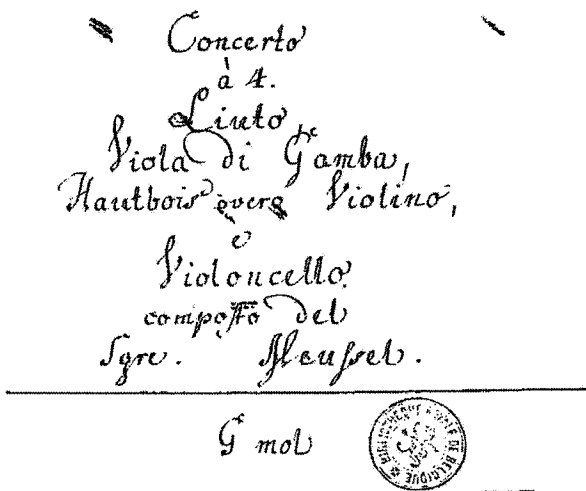 Concerto
à 4.
Liuto,
Viola di Gamba,
Hautbois overo Violino,
e
Violoncello.
composto del
Sgre. Meussel.
G mol
BIBLIOTHEQUE ROYALE DE BELGIQUE